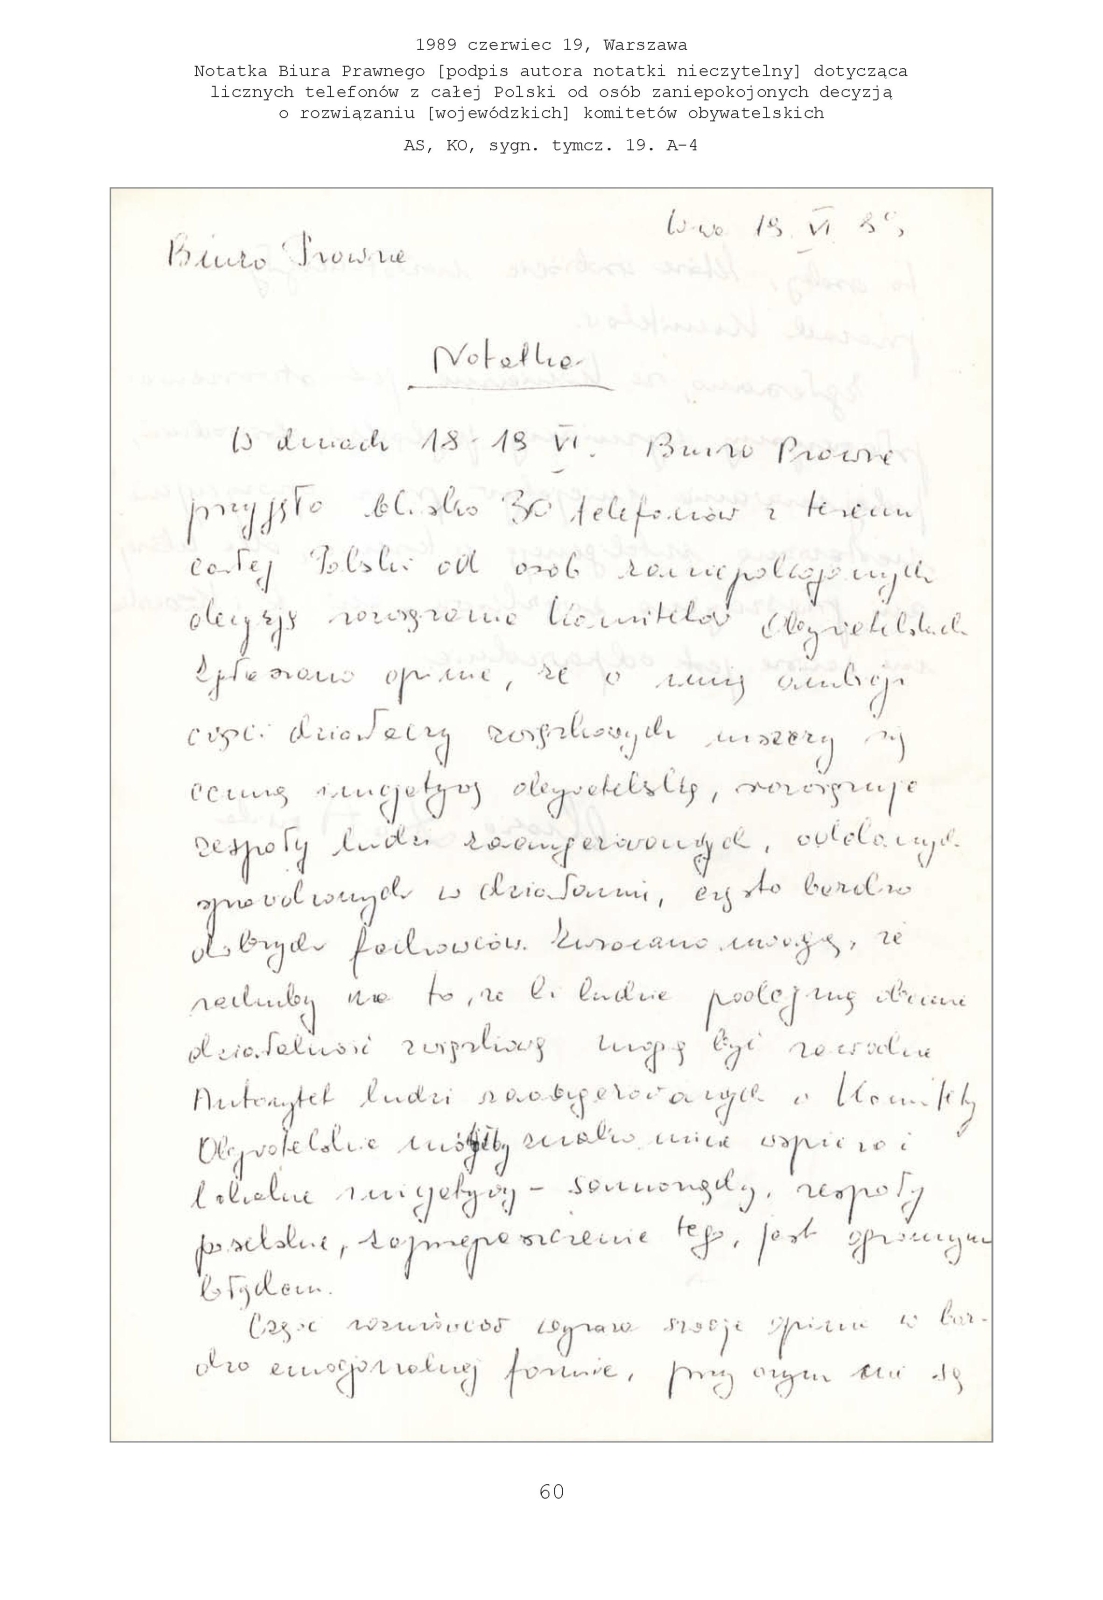 1989 czerwiec 19, Warszawa
Notatka Biura Prawnego [podpis autora notatki nieczytelny] dotycząca
licznych telefonów z całej Polski od osób zaniepokojonych decyzją
o rozwiązaniu [wojewódzkich] komitetów obywatelskich
AS, KO, sygn. tymcz. 19. A-4
W-wa 19 VI 89
Biuro Prawne
Notatka
W dniach 18-19 VI. Biuro Prawne
przyjęło blisko 30 telefonów z terenu
całej Polski od osób zaniepokojonych
decyzją rozwiązania Komitetów Obywatelskich
Zgłaszano opinie, że w imię ambicji
części działaczy związkowych niszczy się
cenną inicjatywę obywatelską, rozwiązuje
zespoły ludzi zaangażowanych, oddanych
sprawdzonych w działaniu, często bardzo
dobrych fachowców. Zwracano uwagę, że
rachuby na to, że ci ludzie podejmą
działalność związkową mogą być zawodne
Autorytet ludzi zaangażowanych w Komitety
Obywatelskie mógłby znakomicie wspierać
lokalne inicjatywy - samorządy, zespoły
poselskie, zaprzepaszczenie tego, jest ogromnym
błędem.
Część rozmówców wyraża swoje opinie w bar-
dzo emocjonalnej formie, przy czym nie są
60